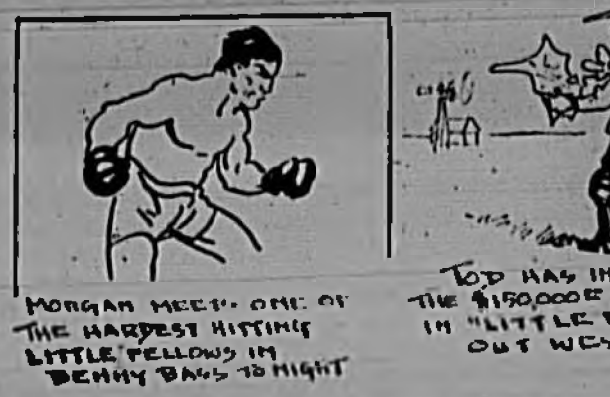 MORGAN MEETS ONE OF
THE HARDEST HITTING
LITTLE FELLOWS IN
BENNY BASS TO NIGHT
TOD HAS
THE $150,000
IN "LITTLE
OUT